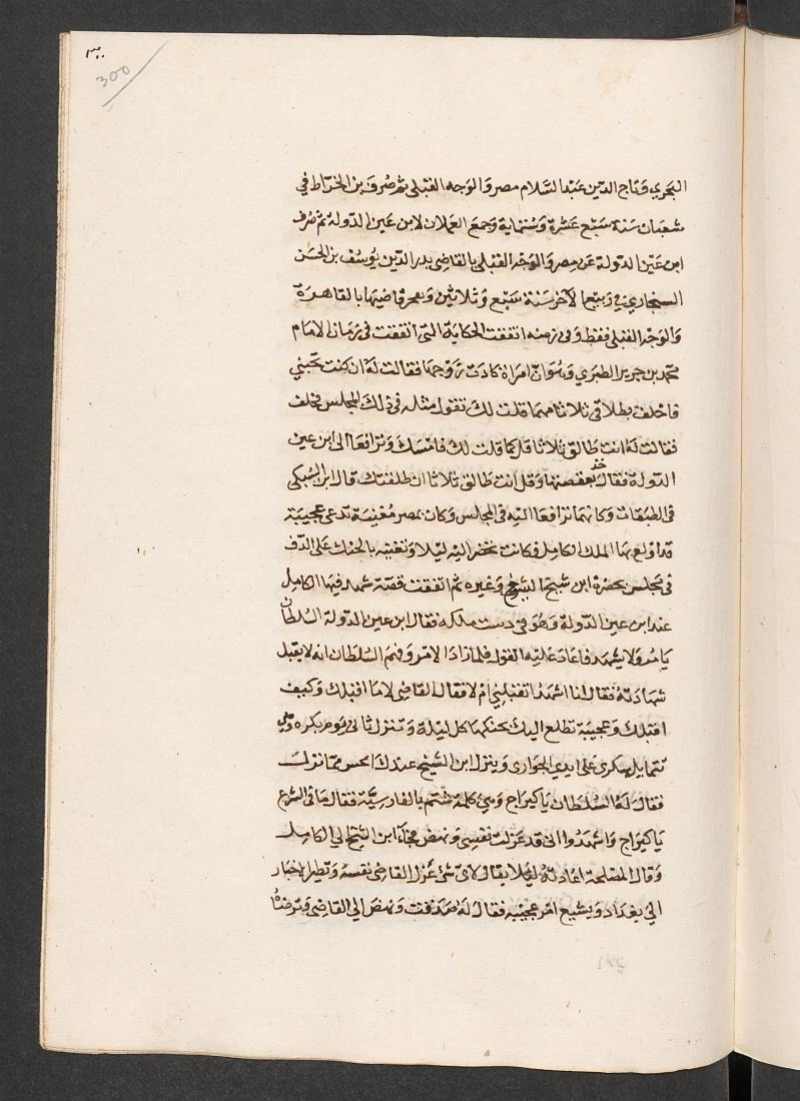 ٣٠٠
300
البحري وتاج الدين عبد السلام مصر والوجه القبلى ثم صُرف بن الخراط في
شعبان سنة سَبْع عشرة وستماية وجمع العملان لابن عين الدولة ثم صُرف
ابن عين الدولة عن مصر والوجه القبلى بالقاضى بدر الدين يوسف بن الحسن
السنجاري في ربيع الآخر سنة سبع وثلاثين وبعمر قاضيها بالقاهرة
والوجه القبلى فقط وفى زمنه اتفقت الحكاية التى اتفقت فى زمان الامام
محمد بن جرير الطبري وهو ان امراة كادت زوجها فقالت له ان كنت تحبني
فاحلف بطلاقى ثلاثا مهما قلت لك تقول مثله فى ذلك المجلس فحلف
فقالت له انت طالق ثلاثا قل كما قلت لك فامسك وترافعا الى ابن عين
الدولة فقال خذ بعقصتها وقل انت طالق ثلاثا ان طلقتك قال ابن السُبكى
فى الطبقات وكانهما ترافعا اليه فى المجلس وكان بمصر مغنية تدعى عجيبة
قد اولع بها الملك الكامل فكانت تحضر اليه ليلا وتغنيه بالجنك على الدف
فى مجلس بحضرة ابن شيخ الشيوخ وغيره ثم اتفقت قضية شهد فيها الكامل
عند ابن عين الدولة وهو فى دست ملكه فقال ابن عين الدولة السُلطان
يامُر ولا يشهد فاعاد عليه القول فلما زاد الامر وفهم السُلطان انه لا يقبل
شهادته فقال انا اشهد اتقبلني ام لا فقال القاضى لا ما اقبلك وكيف
اقبلك وعجيبة تطلع اليك بجنكها كل ليلة وتنزل ثانى يوم بكرة وهي
تتمايل سكرى على ايدي الجوارى وينزل ابن الشيخ من عندك انحس مما نزلت
فقال له السُلطان يا كيراج وهي كلمة شتم بالفارسية فقال ما فى الشرع
يا كيراج واشهدوا انى قد عزلت نفسي ونهض فجاء ابن الشيخ الى الكامل
وقال المصلحة اعادته ليلا يقال لاى شى عزل القاضى نفسه وتطير الاخبار
الى بغداد ويشيع امر عجيبه فقال له صدقت ونهض الى القاضى وترضاه